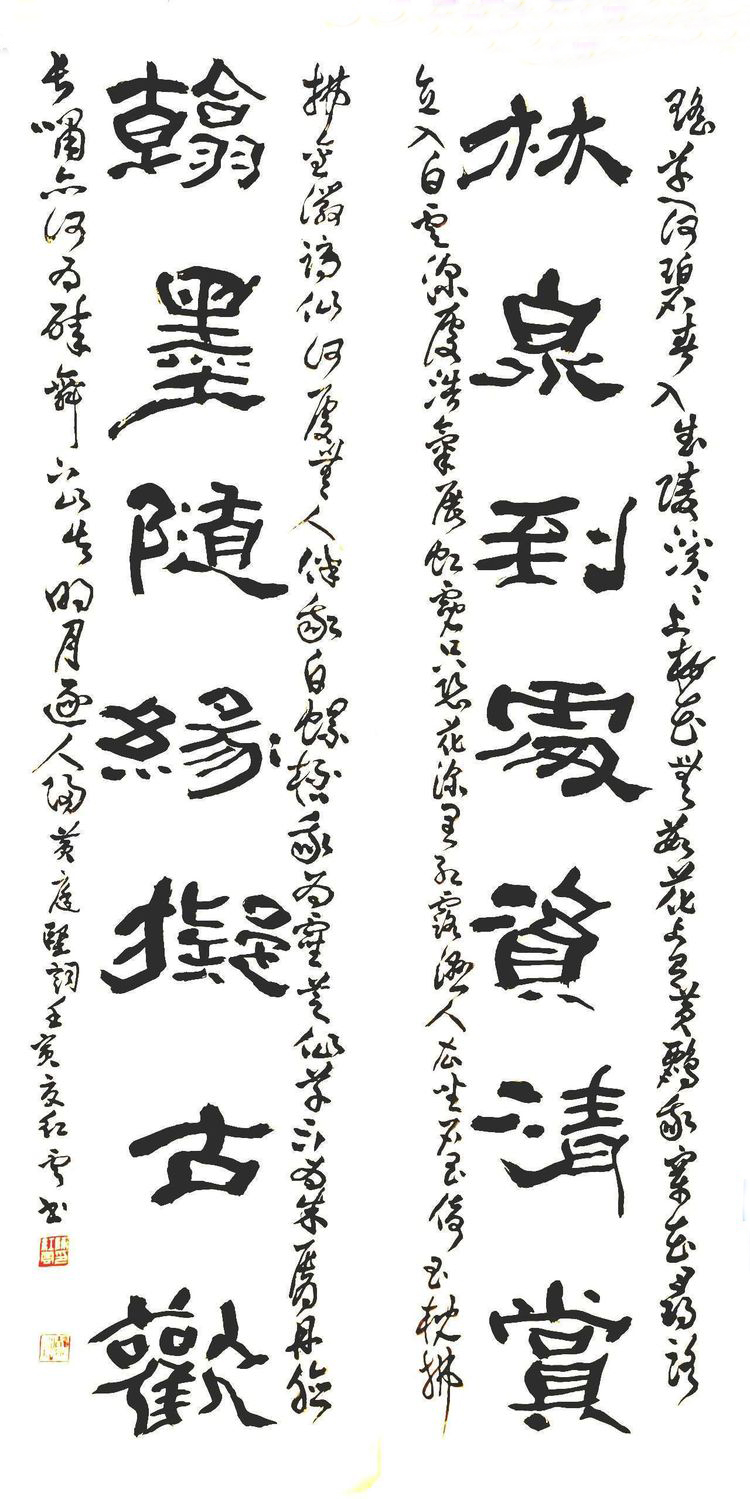 瑤草一何碧春入武陵溪〻上桃花無數花上有黃鸝我穿花尋路
林泉到處資清賞
直入白雲深處浩氣展虹霓只恐花深里紅露濕人衣坐石玉倚玉枕拂
拂金徽謫仙何處無人伴我白螺杯我為靈芝仙草不為朱唇丹臉
翰墨隨緣擬古歡
長嘯亦何為醉舞下山去明月逐人歸黃庭堅詞壬寅夏紅雲書